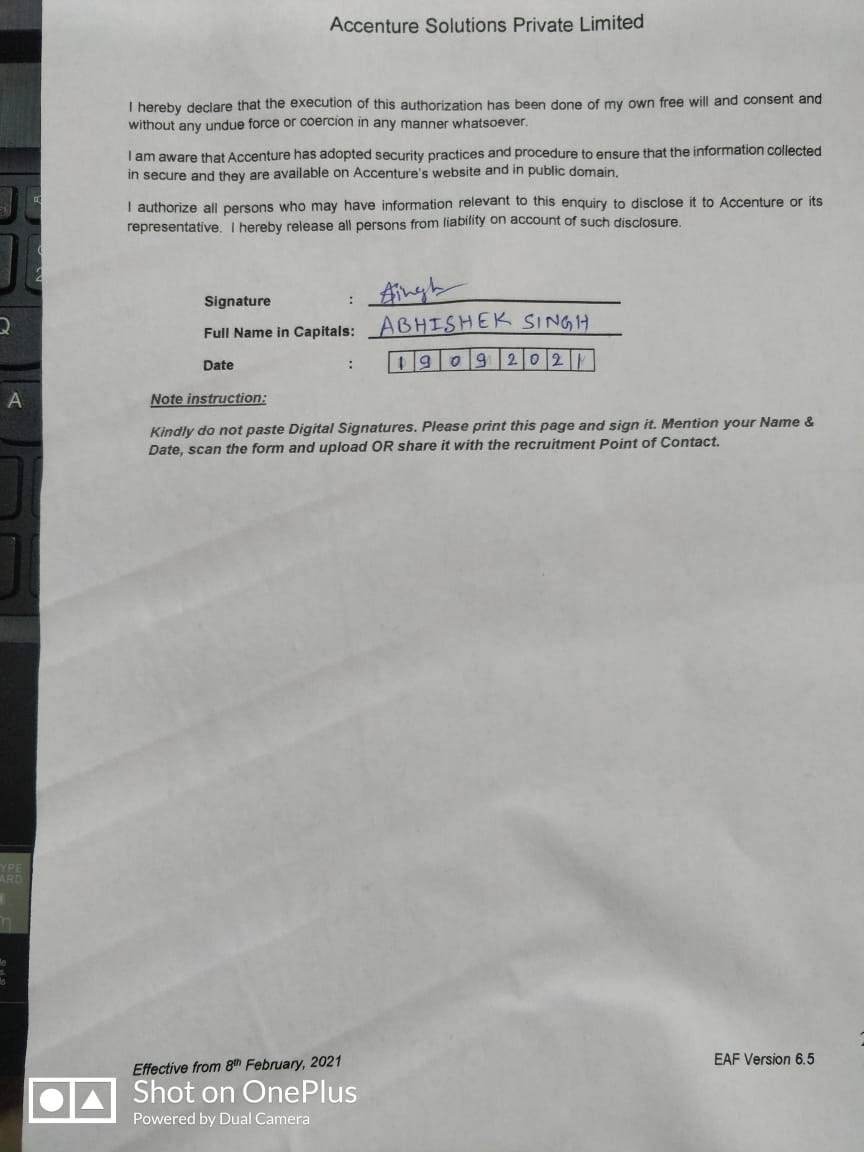 Accenture Solutions Private Limited
I hereby declare that the execution of this authorization has been done of my own free will and consent and
without any undue force or coercion in any manner whatsoever.
I am aware that Accenture has adopted security practices and procedure to ensure that the information collected
in secure and they are available on Accenture's website and in public domain.
I authorize all persons who may have information relevant to this enquiry to disclose it to Accenture or its
representative. I hereby release all persons from liability on account of such disclosure.
Signature : Singh
Full Name in Capitals: ABHISHEK SINGH
Date : 19092021
Note instruction:
Kindly do not paste Digital Signatures. Please print this page and sign it. Mention your Name &
Date, scan the form and upload OR share it with the recruitment Point of Contact.
Effective from 8th February, 2021
EAF Version 6.5
Shot on OnePlus
Powered by Dual Camera
Q
A